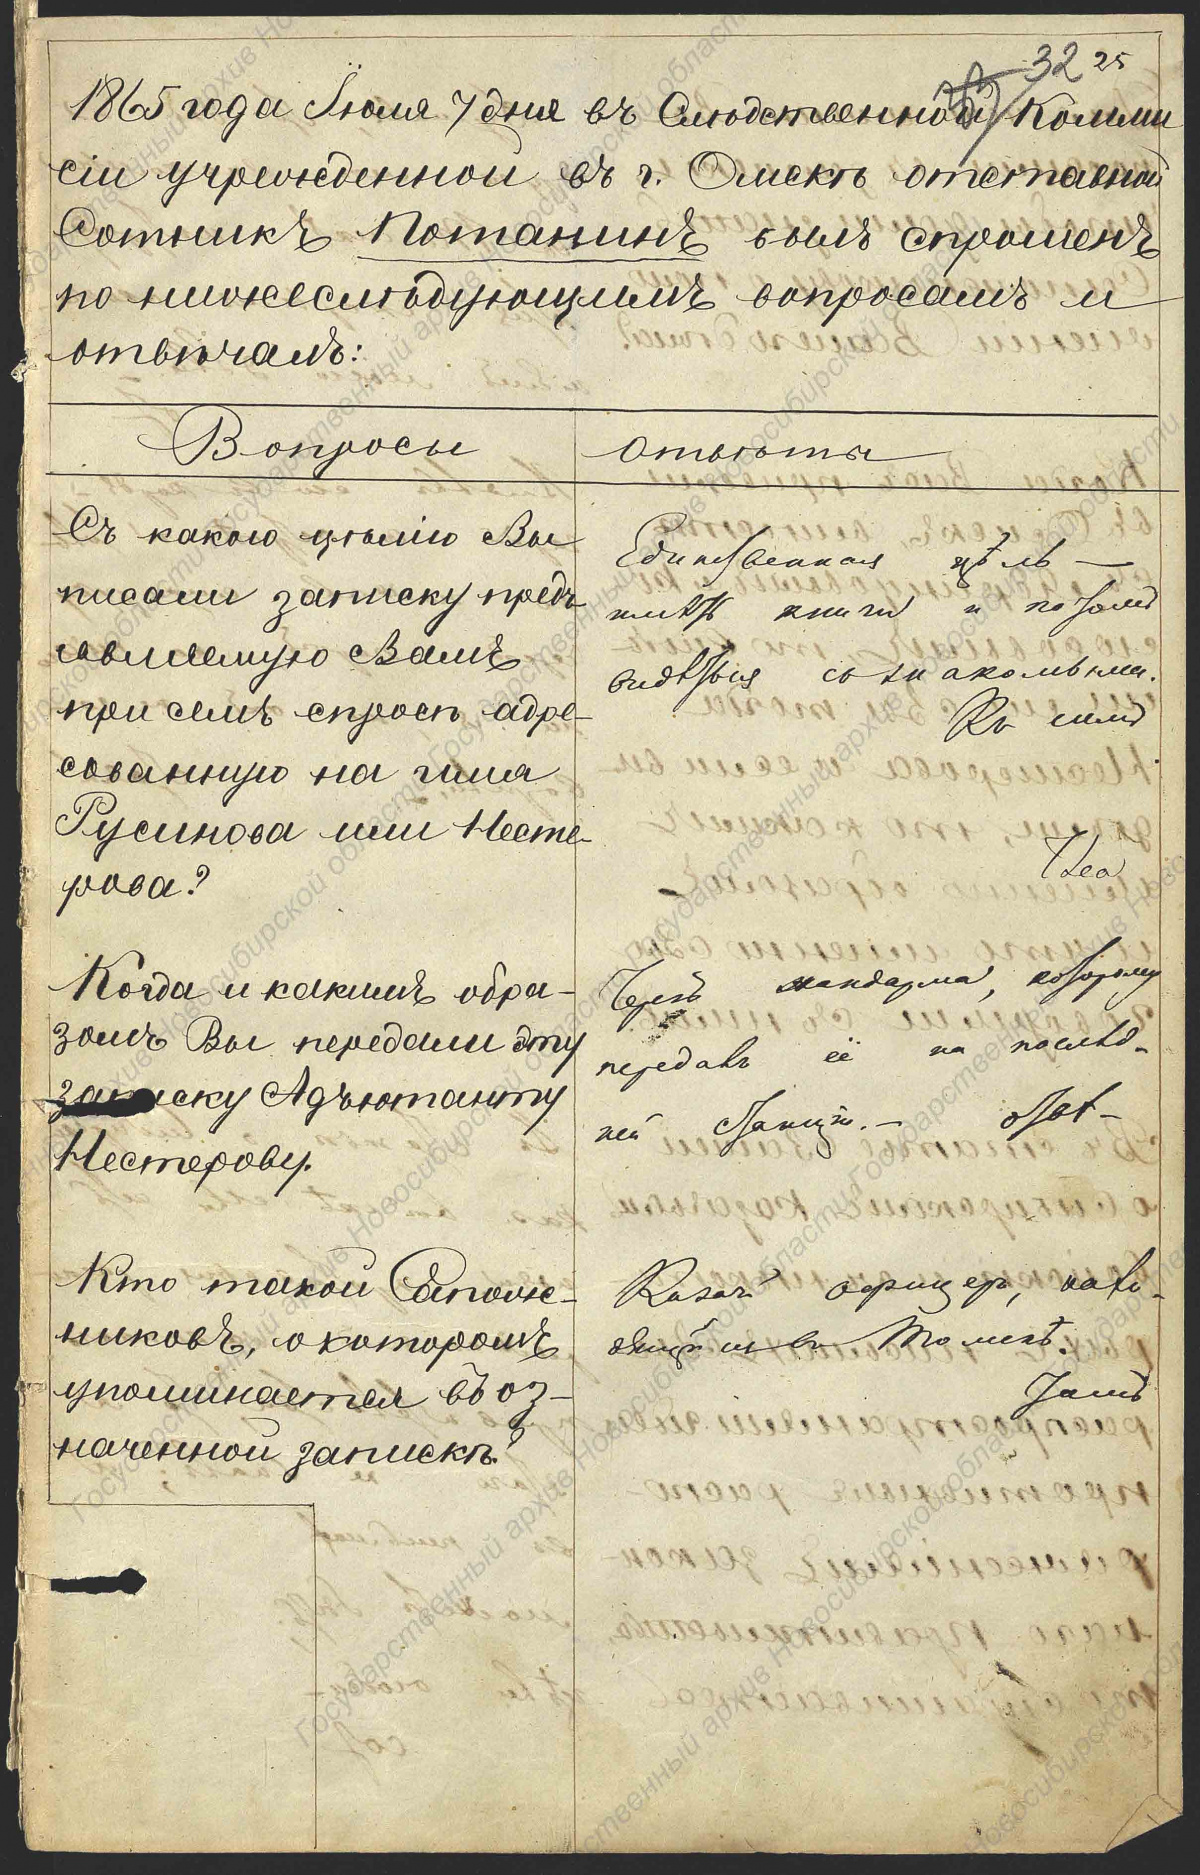 32 25
1865 года Іюля 7 дня въ Слѣдственной Комми
сіи учрежденной въ г. Омскѣ отставной
Сотникъ Потанинъ былъ спрошенъ
по нижеслѣдующимъ вопросамъ и
отвѣчалъ:
Вопросы
Отвѣты
Съ какою цѣлію Вы
писали записку предъ
являемую Вамъ
при семъ спросѣ адре-
сованную на имя
Русинова или Несте-
рова?
Единственная цѣль —
имѣть книги и
видѣться съ знакомыми.
Къ симъ
Когда и какимъ обра-
зомъ Вы передали эту
записку Адъютанту
Нестерову.
Черезъ жандарма, которому
передавъ её на послѣд-
ней станціи. —
Кто такой Сапож-
никовъ, о которомъ
упоминается въ оз-
наченной запискѣ?
Казачій офицеръ, нахо-
дящійся въ Томскѣ.
Государственный архив Новосибирской области